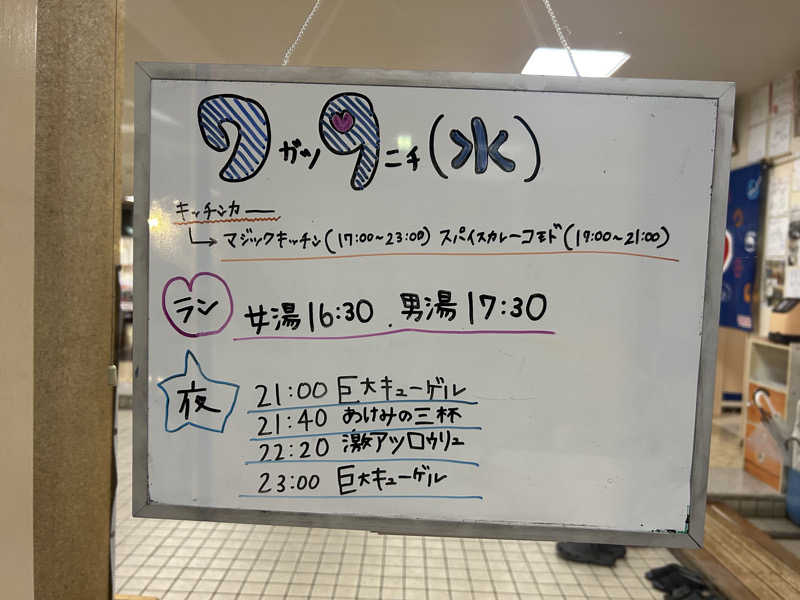 7ガツ9ニチ(水)
キッチンカー
→ マジックキッチン(17:00~23:00) スパイスカレーコモド(17:00~21:00)
ラン 女湯16:30 . 男湯17:30
夜
21:00 巨大キューゲル
21:40 あけみの三杯
22:20 激アツロウリュ
23:00 巨大キューゲル